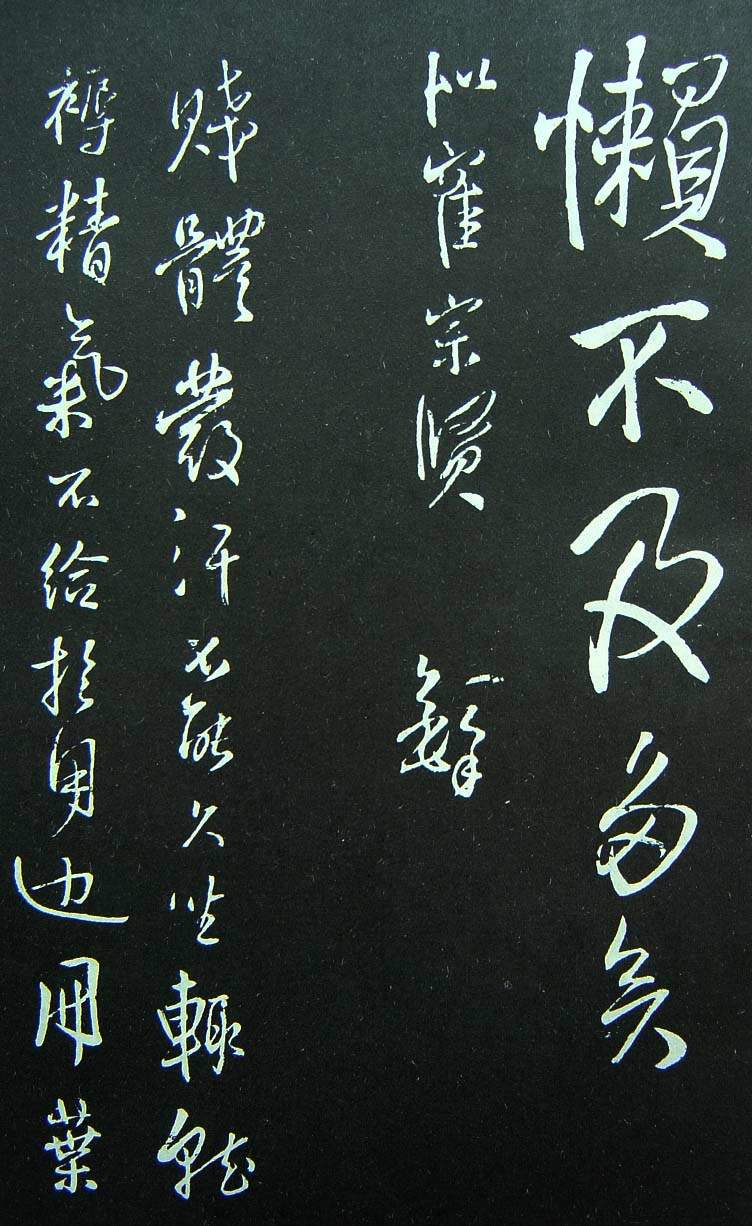 懶不及多矣
似崔宗賢
賤體發汗不能久坐輒就
褥精氣不給於身也開葉